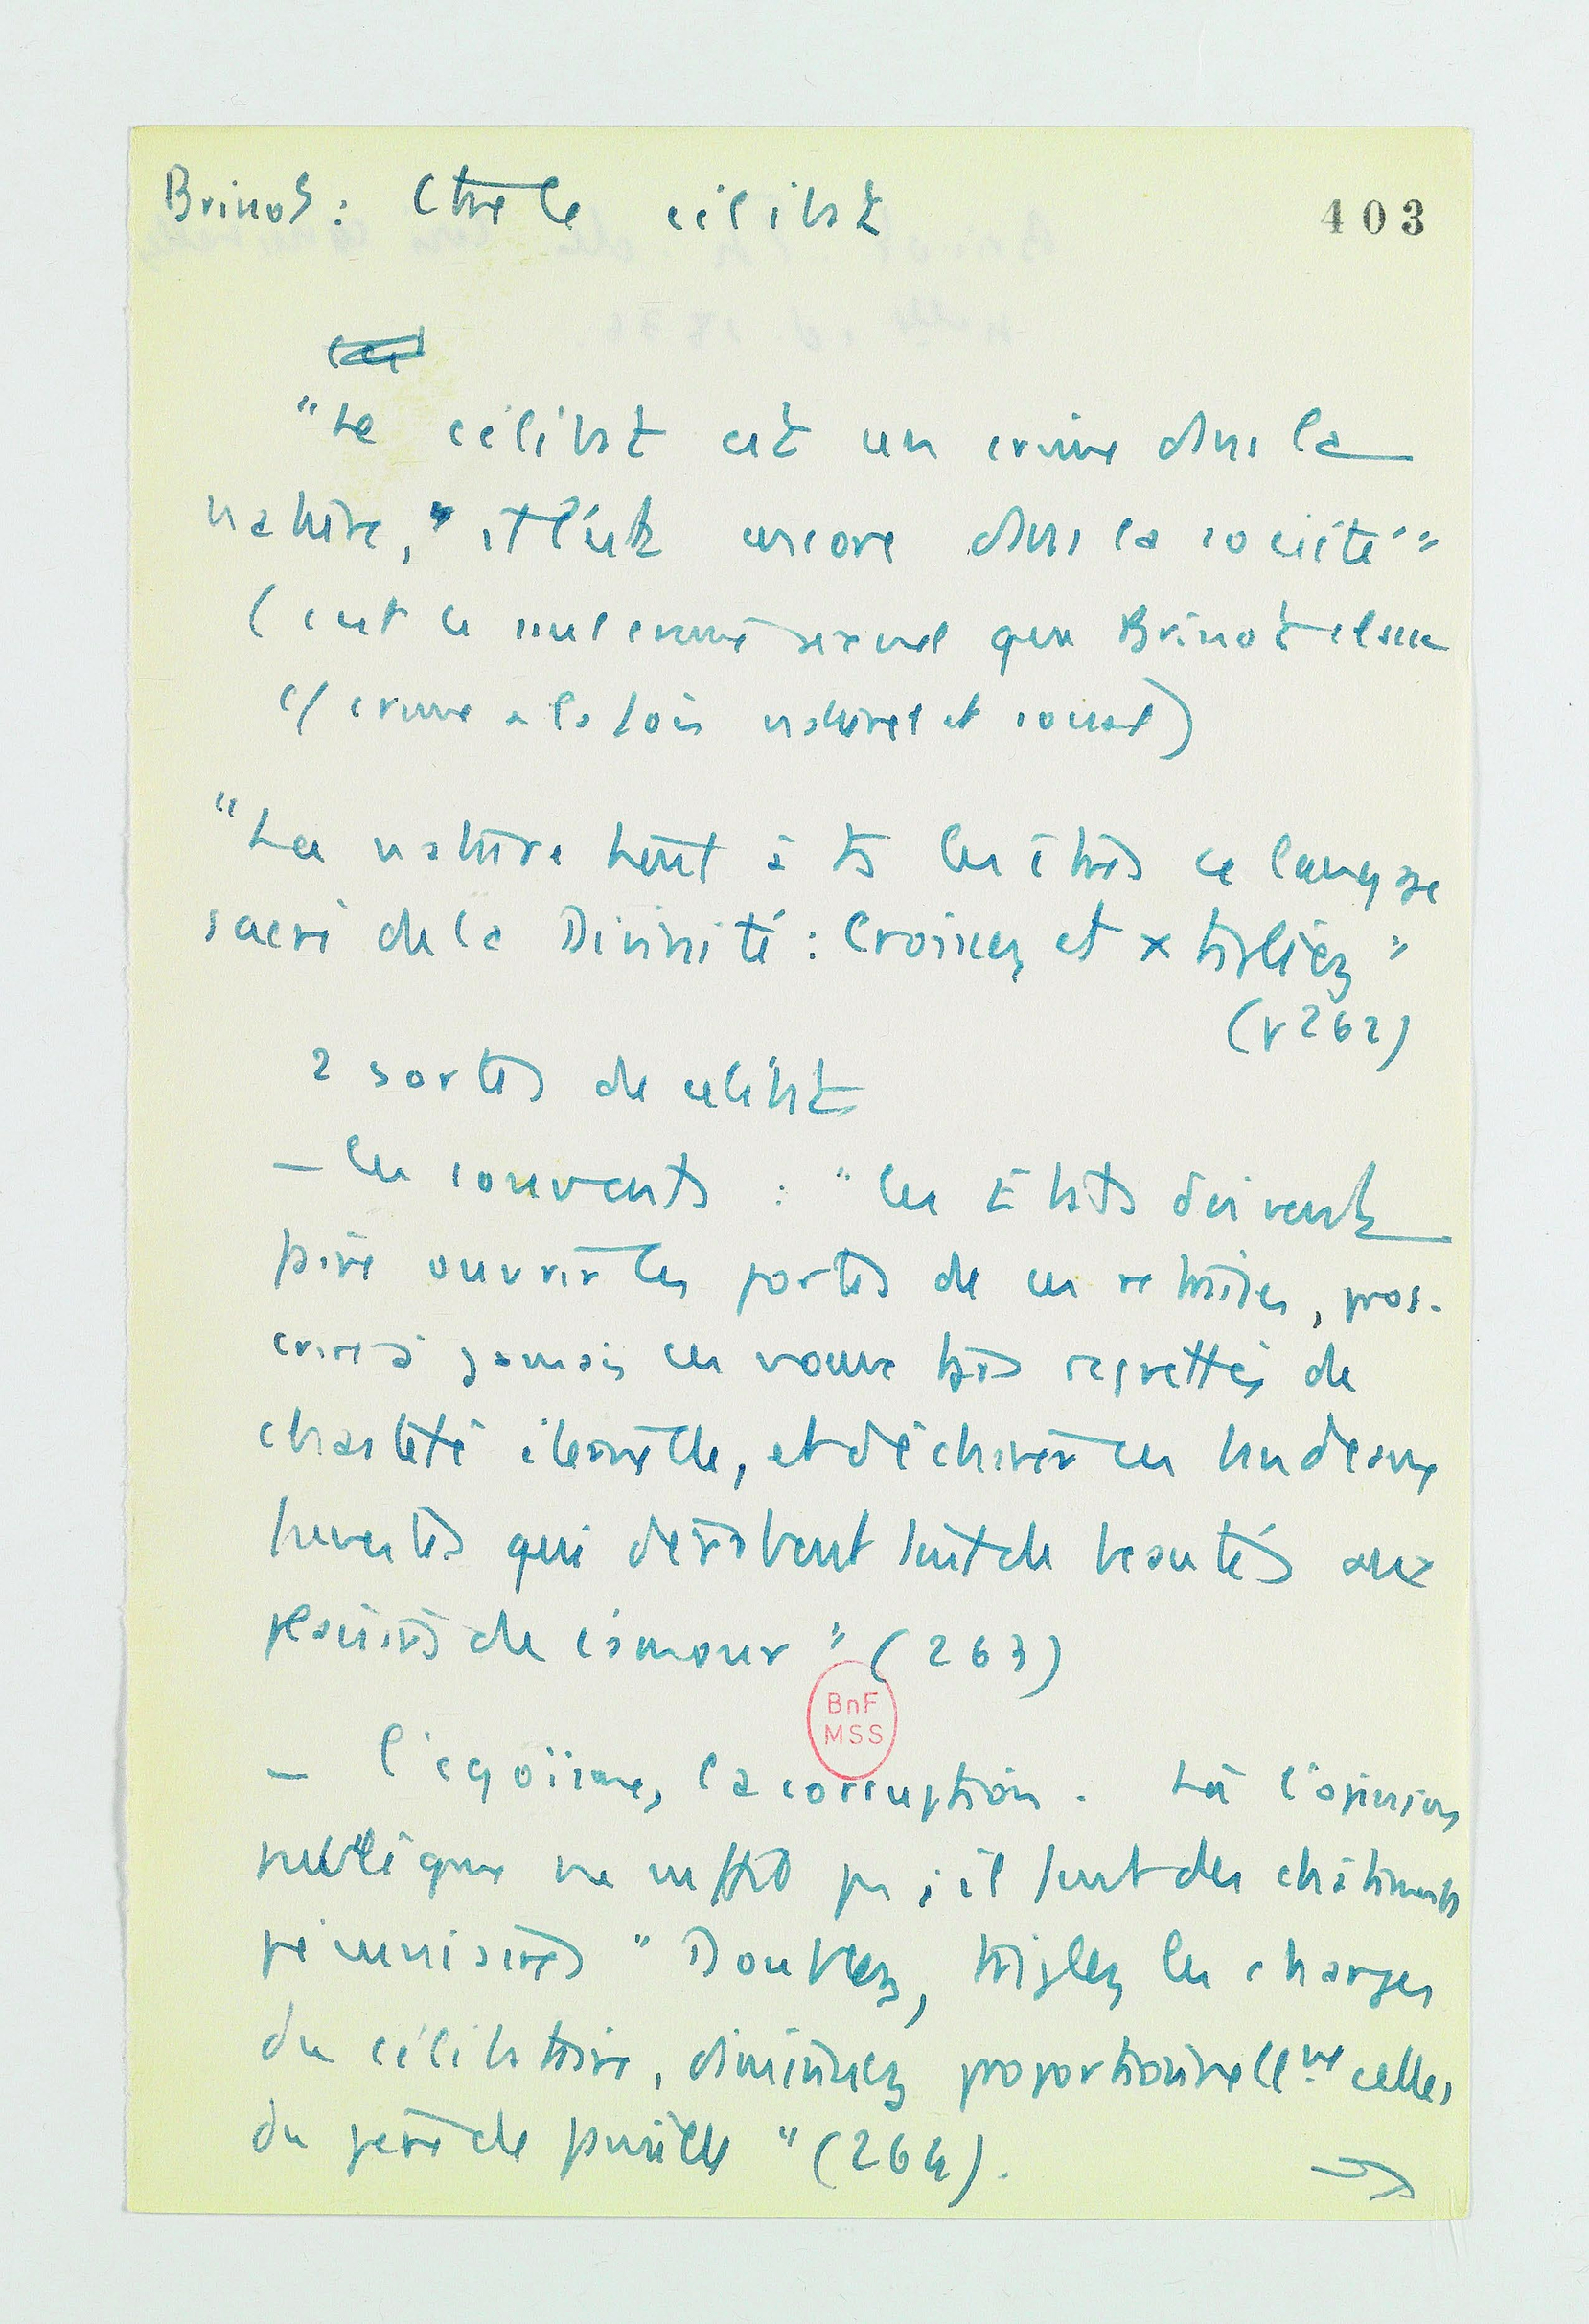 Brissot : Ctre le célibat
403
"Le célibat est un crime dans la
nature, il l'est encore dans la société"
(c'est le seul crime sexuel que Brissot classe
c/ crime à la fois naturel et social)
"La nature tient à ts les êtres ce langage
sacré de la Divinité : Croissez et x tipliez"
(p 262)
2 sortes de célibat
— les couvents : "les Etats doivent
faire ouvrir les portes de ces retraites, pros-
crire à jamais ces voeux trop regrettés de
chasteté éternelle, et déchirer ces bandeaux
funestes qui dérobent tant de beautés aux
plaisirs de l'amour" (263)
BnF
MSS
— l'egoïsme, la corruption. Là l'opinion
publique ne suffit pas ; il faut des châtiments
pécuniaires "Doublez, triplez les charges
du célibataire, diminuez proportionnellemt celles
du père de famille" (264).
→